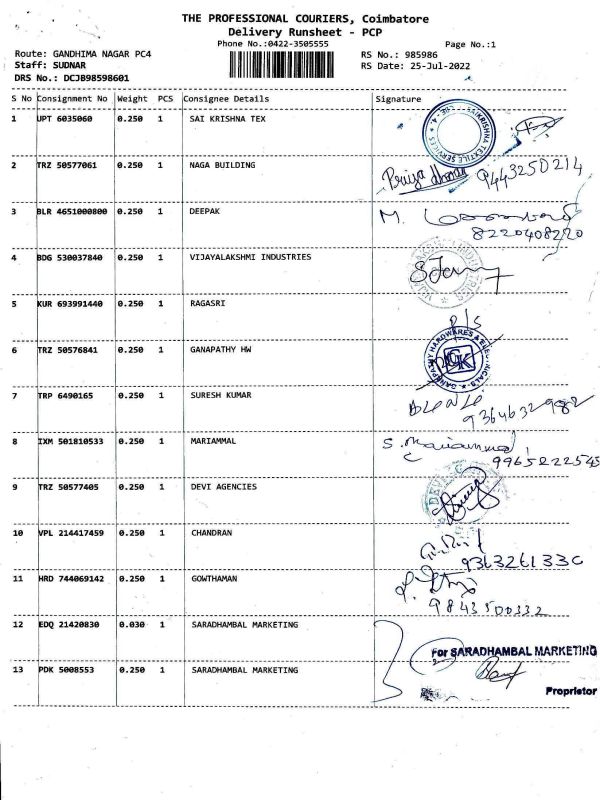 THE PROFESSIONAL COURIERS, Coimbatore
Delivery Runsheet - PCP
Phone No.:0422-3505555
Page No.:1
Route: GANDHIMA NAGAR PC4
RS No.: 985986
Staff: SUDNAR
RS Date: 25-Jul-2022
DRS No.: DCJB98598601
S No Consignment No Weight PCS Consignee Details Signature
1 UPT 6035060 0.250 1 SAI KRISHNA TEX
2 TRZ 50577061 0.250 1 NAGA BUILDING Priya 9443250214
3 BLR 4651000800 0.250 1 DEEPAK M.
8220408220
4 BDG 530037840 0.250 1 VIJAYALAKSHMI INDUSTRIES
5 KUR 693991440 0.250 1 RAGASRI
R/S
6 TRZ 50576841 0.250 1 GANAPATHY HW GANAPATHY HARDWARES & ELECTRICALS GK
7 TRP 6490165 0.250 1 SURESH KUMAR
9364632982
8 IXM 501810533 0.250 1 MARIAMMAL S. Mariammal
9965222545
9 TRZ 50577405 0.250 1 DEVI AGENCIES
10 VPL 214417459 0.250 1 CHANDRAN
9363261330
11 HRD 744069142 0.250 1 GOWTHAMAN
9843500332
12 EDQ 21420830 0.030 1 SARADHAMBAL MARKETING
For SARADHAMBAL MARKETING
13 PDK 5008553 0.250 1 SARADHAMBAL MARKETING
Proprietor